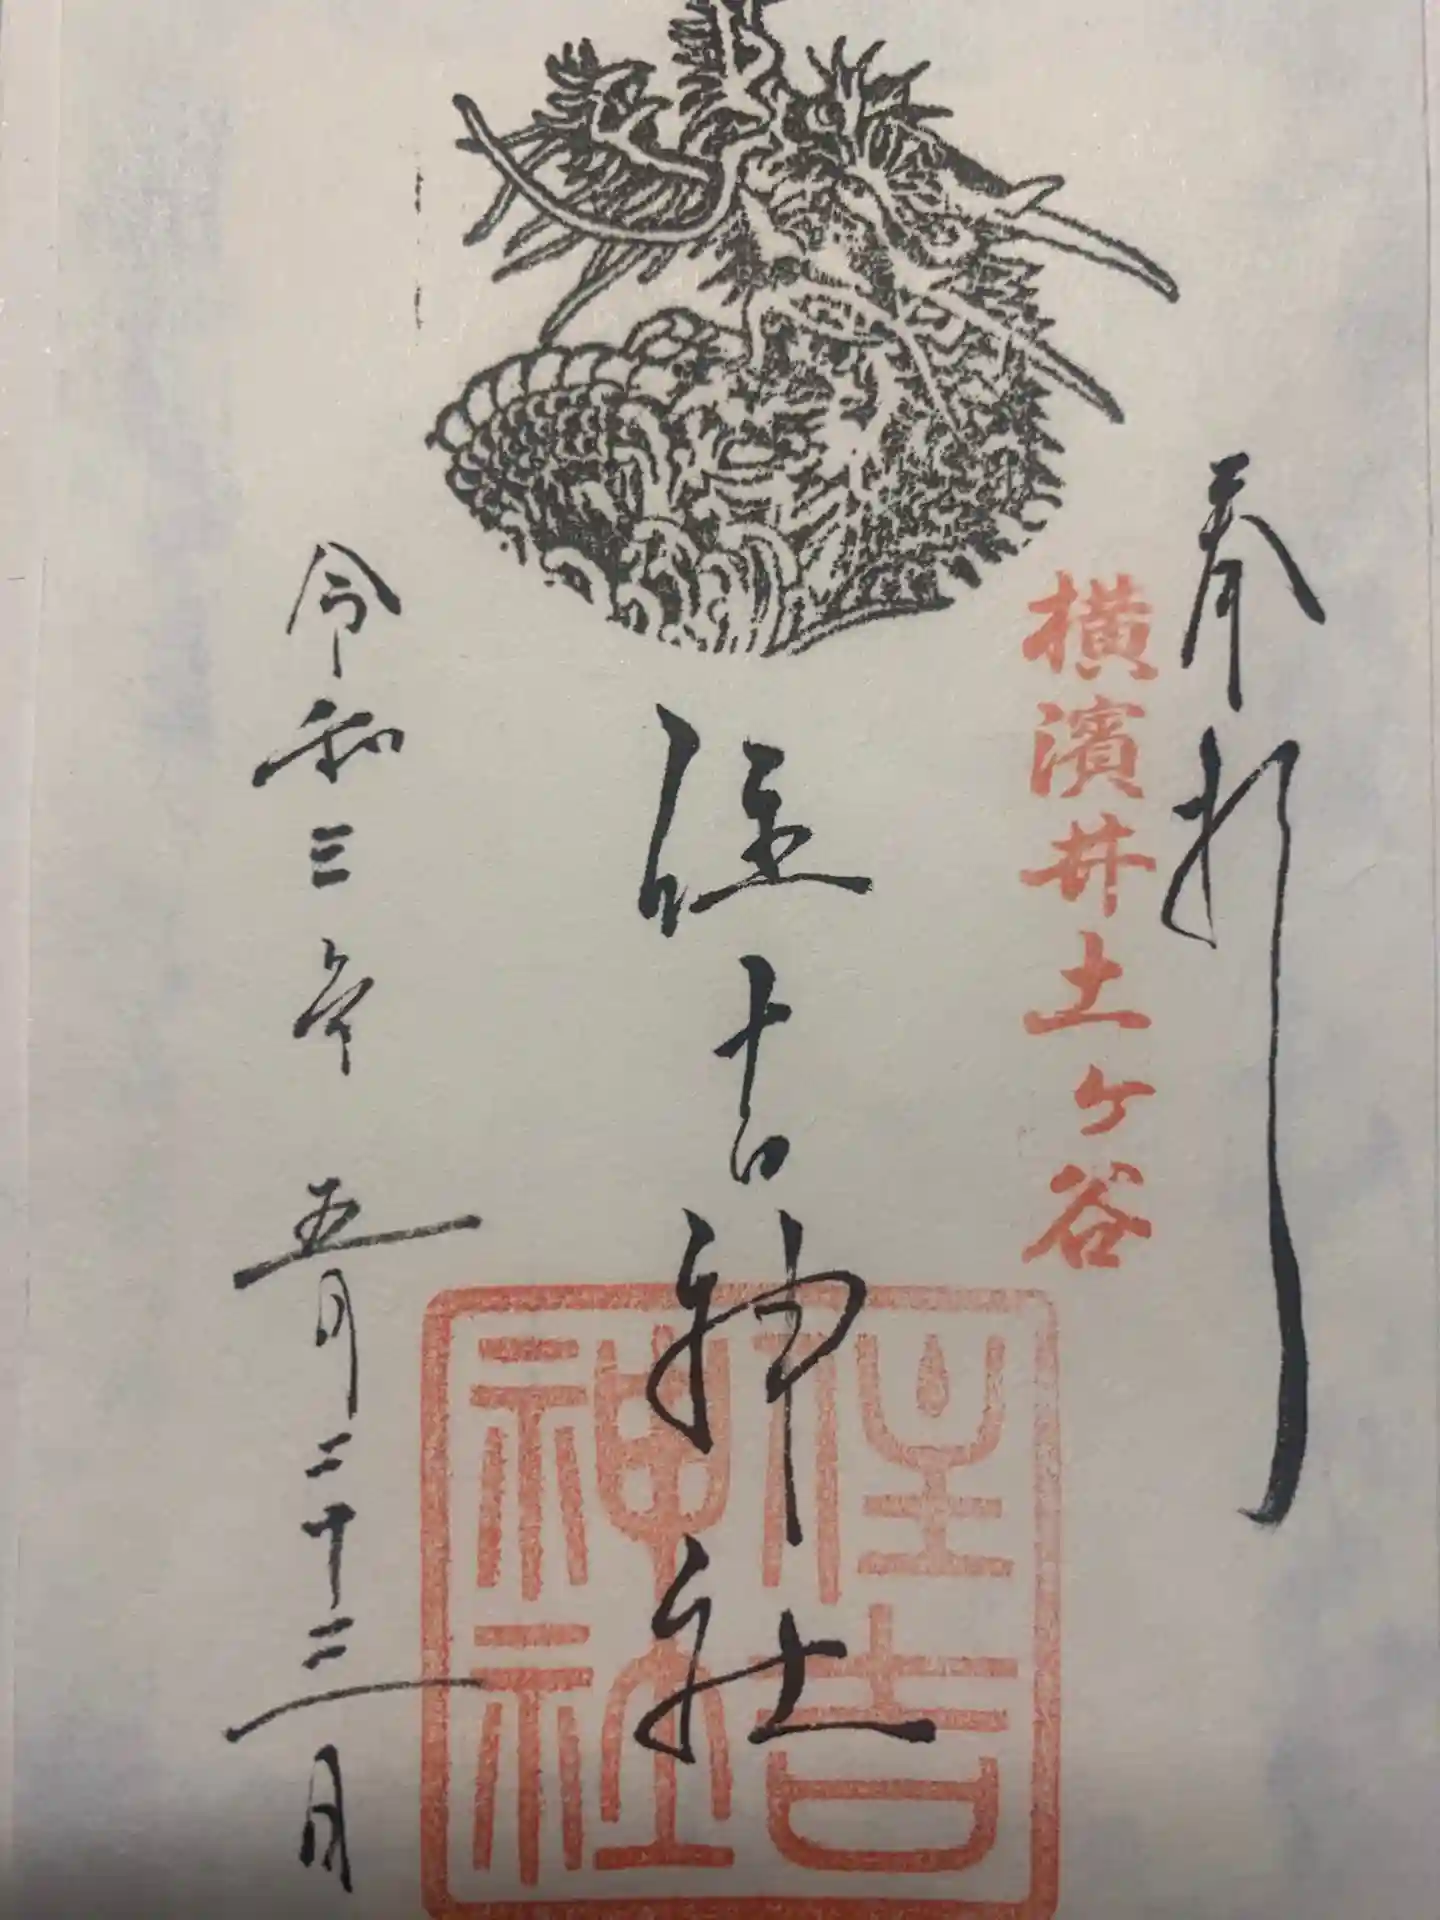 奉拝
横濱井土ヶ谷
住吉神社
住吉神社
令和三年五月二十三日